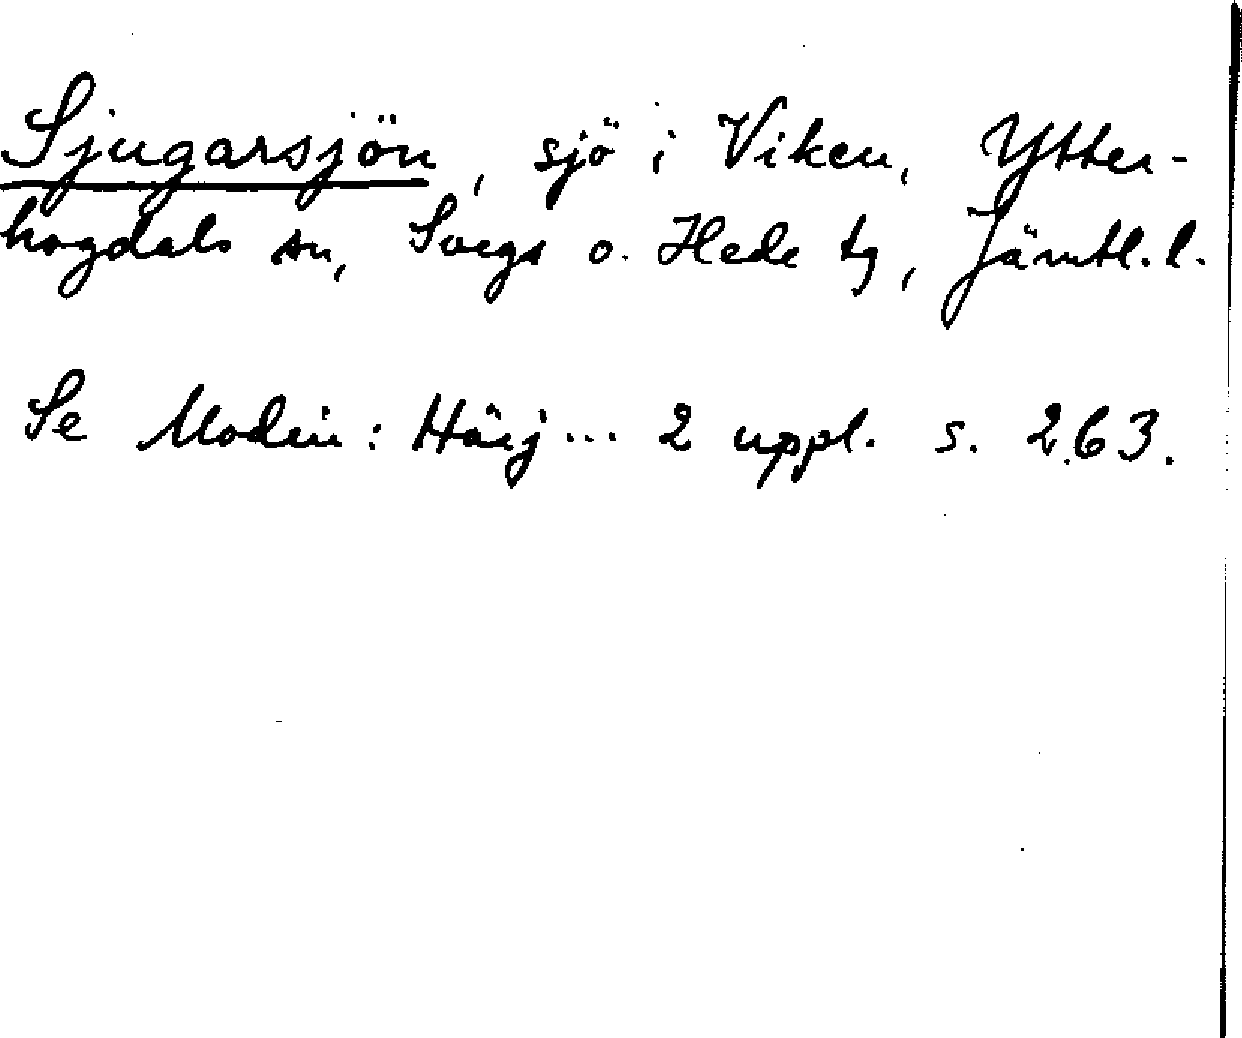 Sjugarsjön, sjö i Viken, Ytter-
hogdals sn, Svegs o. Hede tg, Jämtl. l.
Se Modin: Härj... 2 uppl. s. 263.